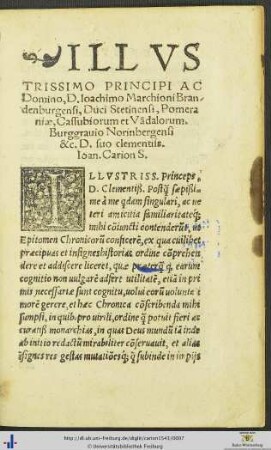 ILLVS
TRISSIMO PRINCIPI AC
Domino, D. Ioachimo Marchioni Bran-
denburgensi, Duci Stetinensi, Pomera
niæ, Cassubiorum et Vādalorum.
Burggrauio Norinbergensi
&c. D. suo clementiss.
Ioan. Carion S.
ILLVSTRISS. Princeps,
D. Clementiss. Postq̃ sæpissi
me à me qdam singulari, ac ue
teri amicitia familiaritateq́;
mihi cōiuncti contenderēt, ut
Epitomen Chronicorū conficerē, ex qua cuilibet
præcipuas et insignes historias ordine cōprehen
dere et addiscere liceret, quæ præterq̃ q̃ earum
cognitio non uulgarē adfere utilitatē, etiā in pri
mis necessariæ sunt cognitu, uolui eorū uoluntati
morē gerere, et hæc Chronica cōscribenda mihi
sumpsi, in quib. pro uirili, ordine q̃ potuit fieri ac
curatiss. monarchias, in quas Deus mundū iā inde
ab initio redactū mirabiliter cōseruauit, et alias
q̃ insignes res gestas mutationesq́; q̃ subinde in in ipsis
http://dl.ub.uni-freiburg.de/diglit/carion1543/0007
© Universitätsbibliothek Freiburg